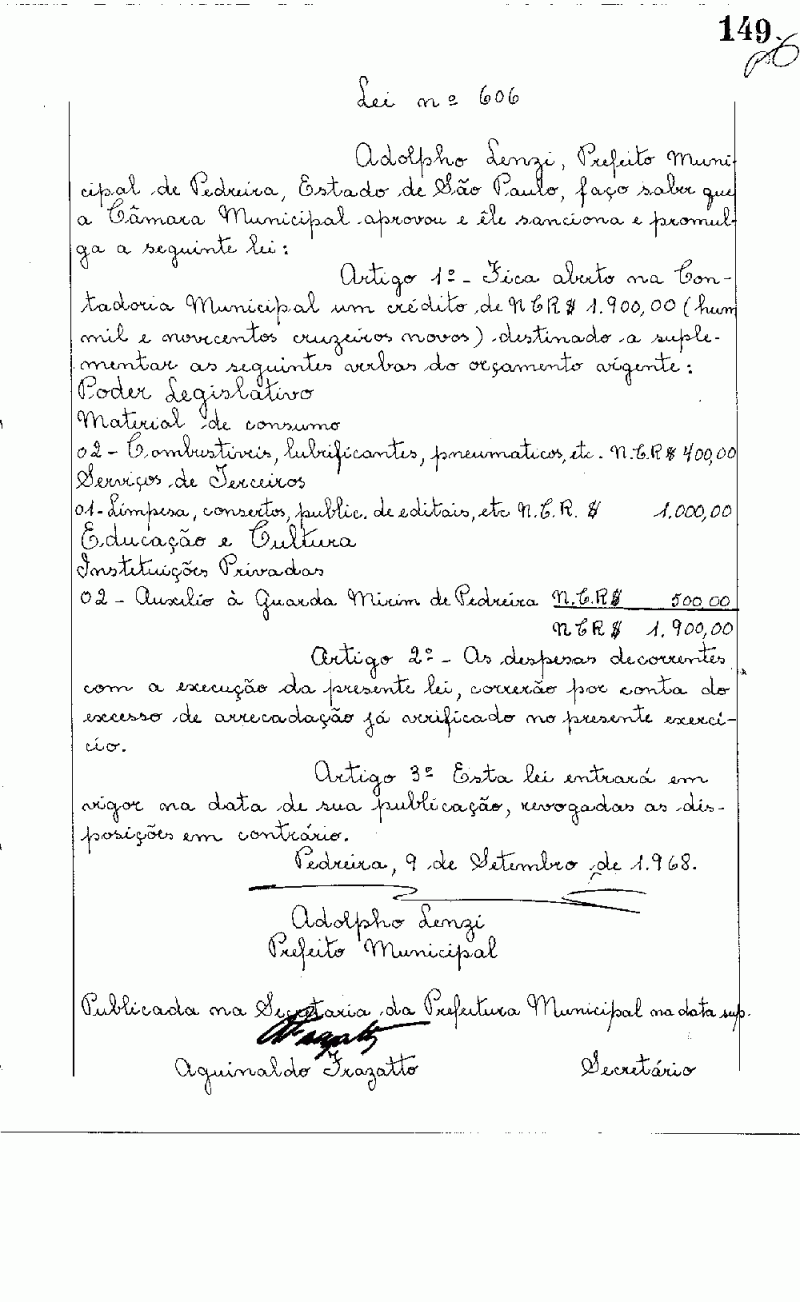 149
Lei nº 606
Adolpho Lenzi, Prefeito Muni-
cipal de Pedreira, Estado de São Paulo, faço saber que
a Câmara Municipal aprovou e êle sanciona e promul-
ga a seguinte lei:
Artigo 1º - Fica aberto na Con-
tadoria Municipal um crédito de NCR$ 1.900,00 (hum
mil e novecentos cruzeiros novos) destinado a suple-
mentar as seguintes verbas do orçamento vigente:
Poder Legislativo
Material de consumo
02 - Combustiveis, lubrificantes, pneumaticos, etc. N.C.R$ 400,00
Serviços de Terceiros
01 - Limpesa, consertos, public. de editais, etc N.C.R.$ 1.000,00
Educação e Cultura
Instituições Privadas
02 - Auxilio à Guarda Mirim de Pedreira N.C.R$ 500,00
NCR$ 1.900,00
Artigo 2º - As despesas decorrentes
com a execução da presente lei, correrão por conta do
excesso de arrecadação já verificado no presente exercí-
cio.
Artigo 3º Esta lei entrará em
vigor na data de sua publicação, revogadas as dis-
posições em contrário.
Pedreira, 9 de Setembro de 1.968.
Adolpho Lenzi
Prefeito Municipal
Publicada na Secretaria da Prefeitura Municipal na data sup.
Aguinaldo Frazatto Secretário